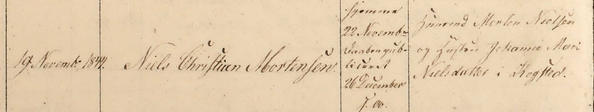 19 Novemb. 1844.
Niels Christian Mortensen.
hjemme
22 Novemb.
Daaben pub-
liceret
26 December
f. A.
Huusmand Morten Nielsen
og Hustru Johanne Marie
Nielsdatter i Kogsted.